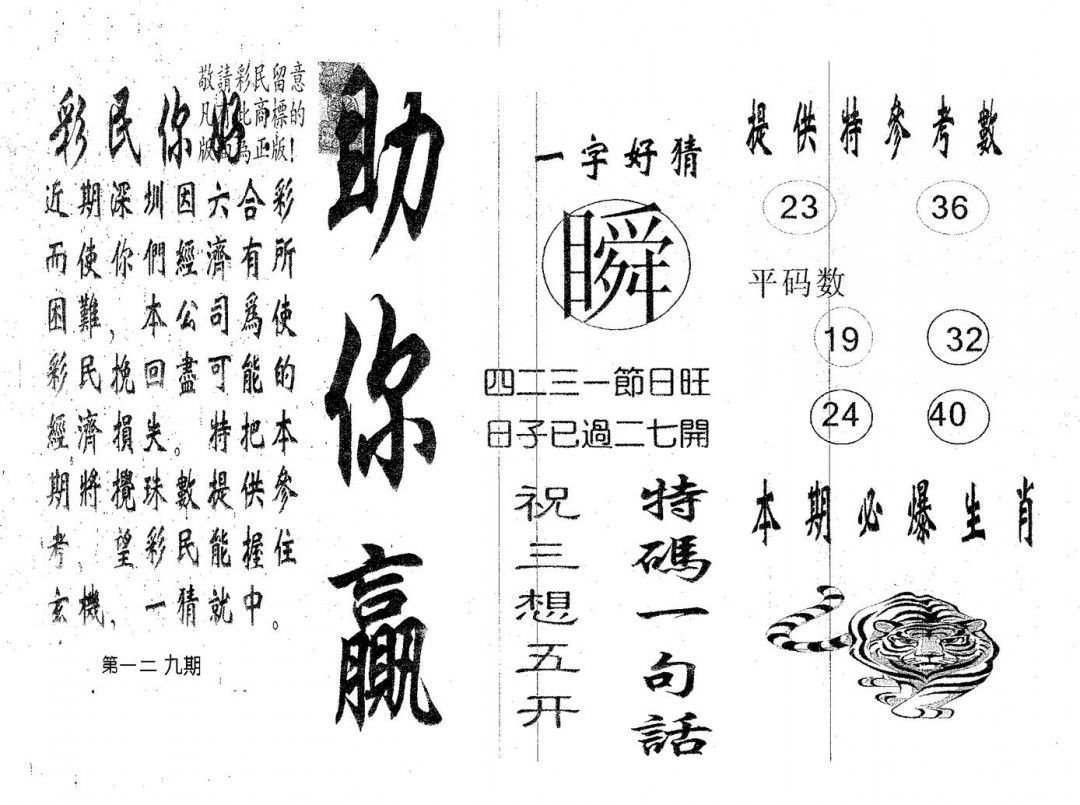 敬請彩民留意
凡 此商標的
版 為正版！
彩民你好
近期深圳因六合彩
而使你們經濟有所
困難，本公司爲使
彩民挽回盡可能的
經濟損失。特把本
期將攪珠數提供參
考，望彩民能握住
玄機，一猜就中。
第一二九期
助你贏
一字好猜
瞬
四二三一節日旺
日子已過二七開
特碼一句話
祝三想五开
提供特參考數
23 36
平码数
19 32
24 40
本期必爆生肖